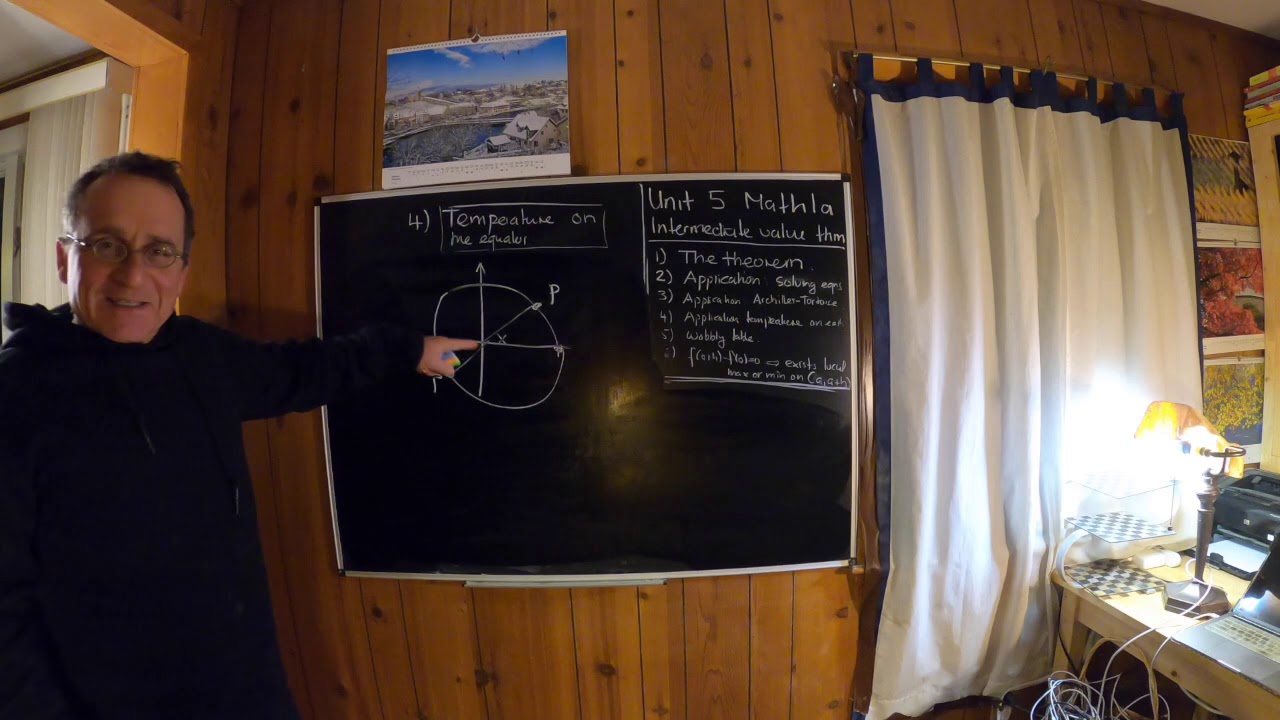 4) Temperature on
the equator
P
x
Unit 5 Math1a
Intermediate value thm
1) The theorem.
2) Application: solving eqns
3) Application Archilles-Tortoise
4) Application temperature on
5) Wobbly table.
f(a+h)-f(a)=0 ⇒ exists local
max or min on (a,a+h)